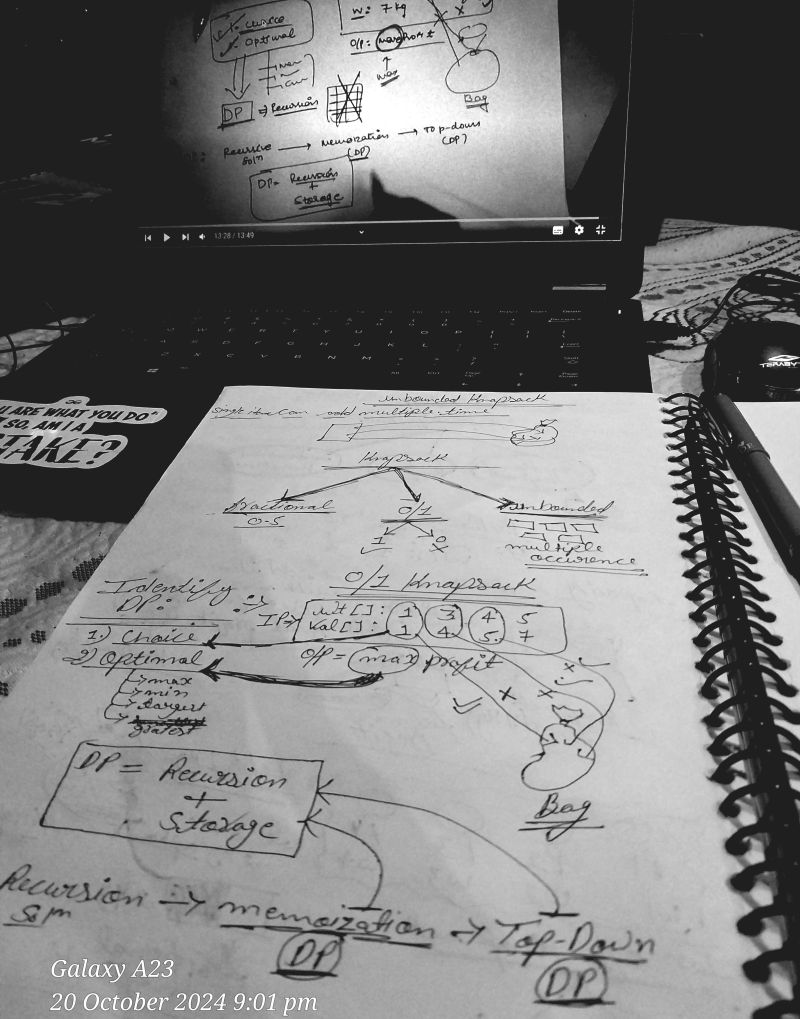 choice
optimal
W: 7 kg
O/P: max Profit
max
Bag
DP → Recursion
Recursive → Memoization → Top-down
Soln (DP) (DP)
DP = Recursion
+
Storage
13:28 / 13:49
ARE WHAT YOU DO"
SO, AM I A
unbounded Knapsack
single item can add multiple time
Knapsack
fractional 0/1 unbounded
0.5
1 0
multiple
occurence
TERABY
Identify
DP:
0/1 Knapsack
I/P → wt[]: 1 3 4 5
Val[]: 1 4 5 7
1) Choice
2) Optimal
O/P = max profit
max
min
largest
Bag
DP = Recursion
+
Storage
Recursion → memoization → Top-Down
Soln
DP DP
Galaxy A23
20 October 2024 9:01 pm